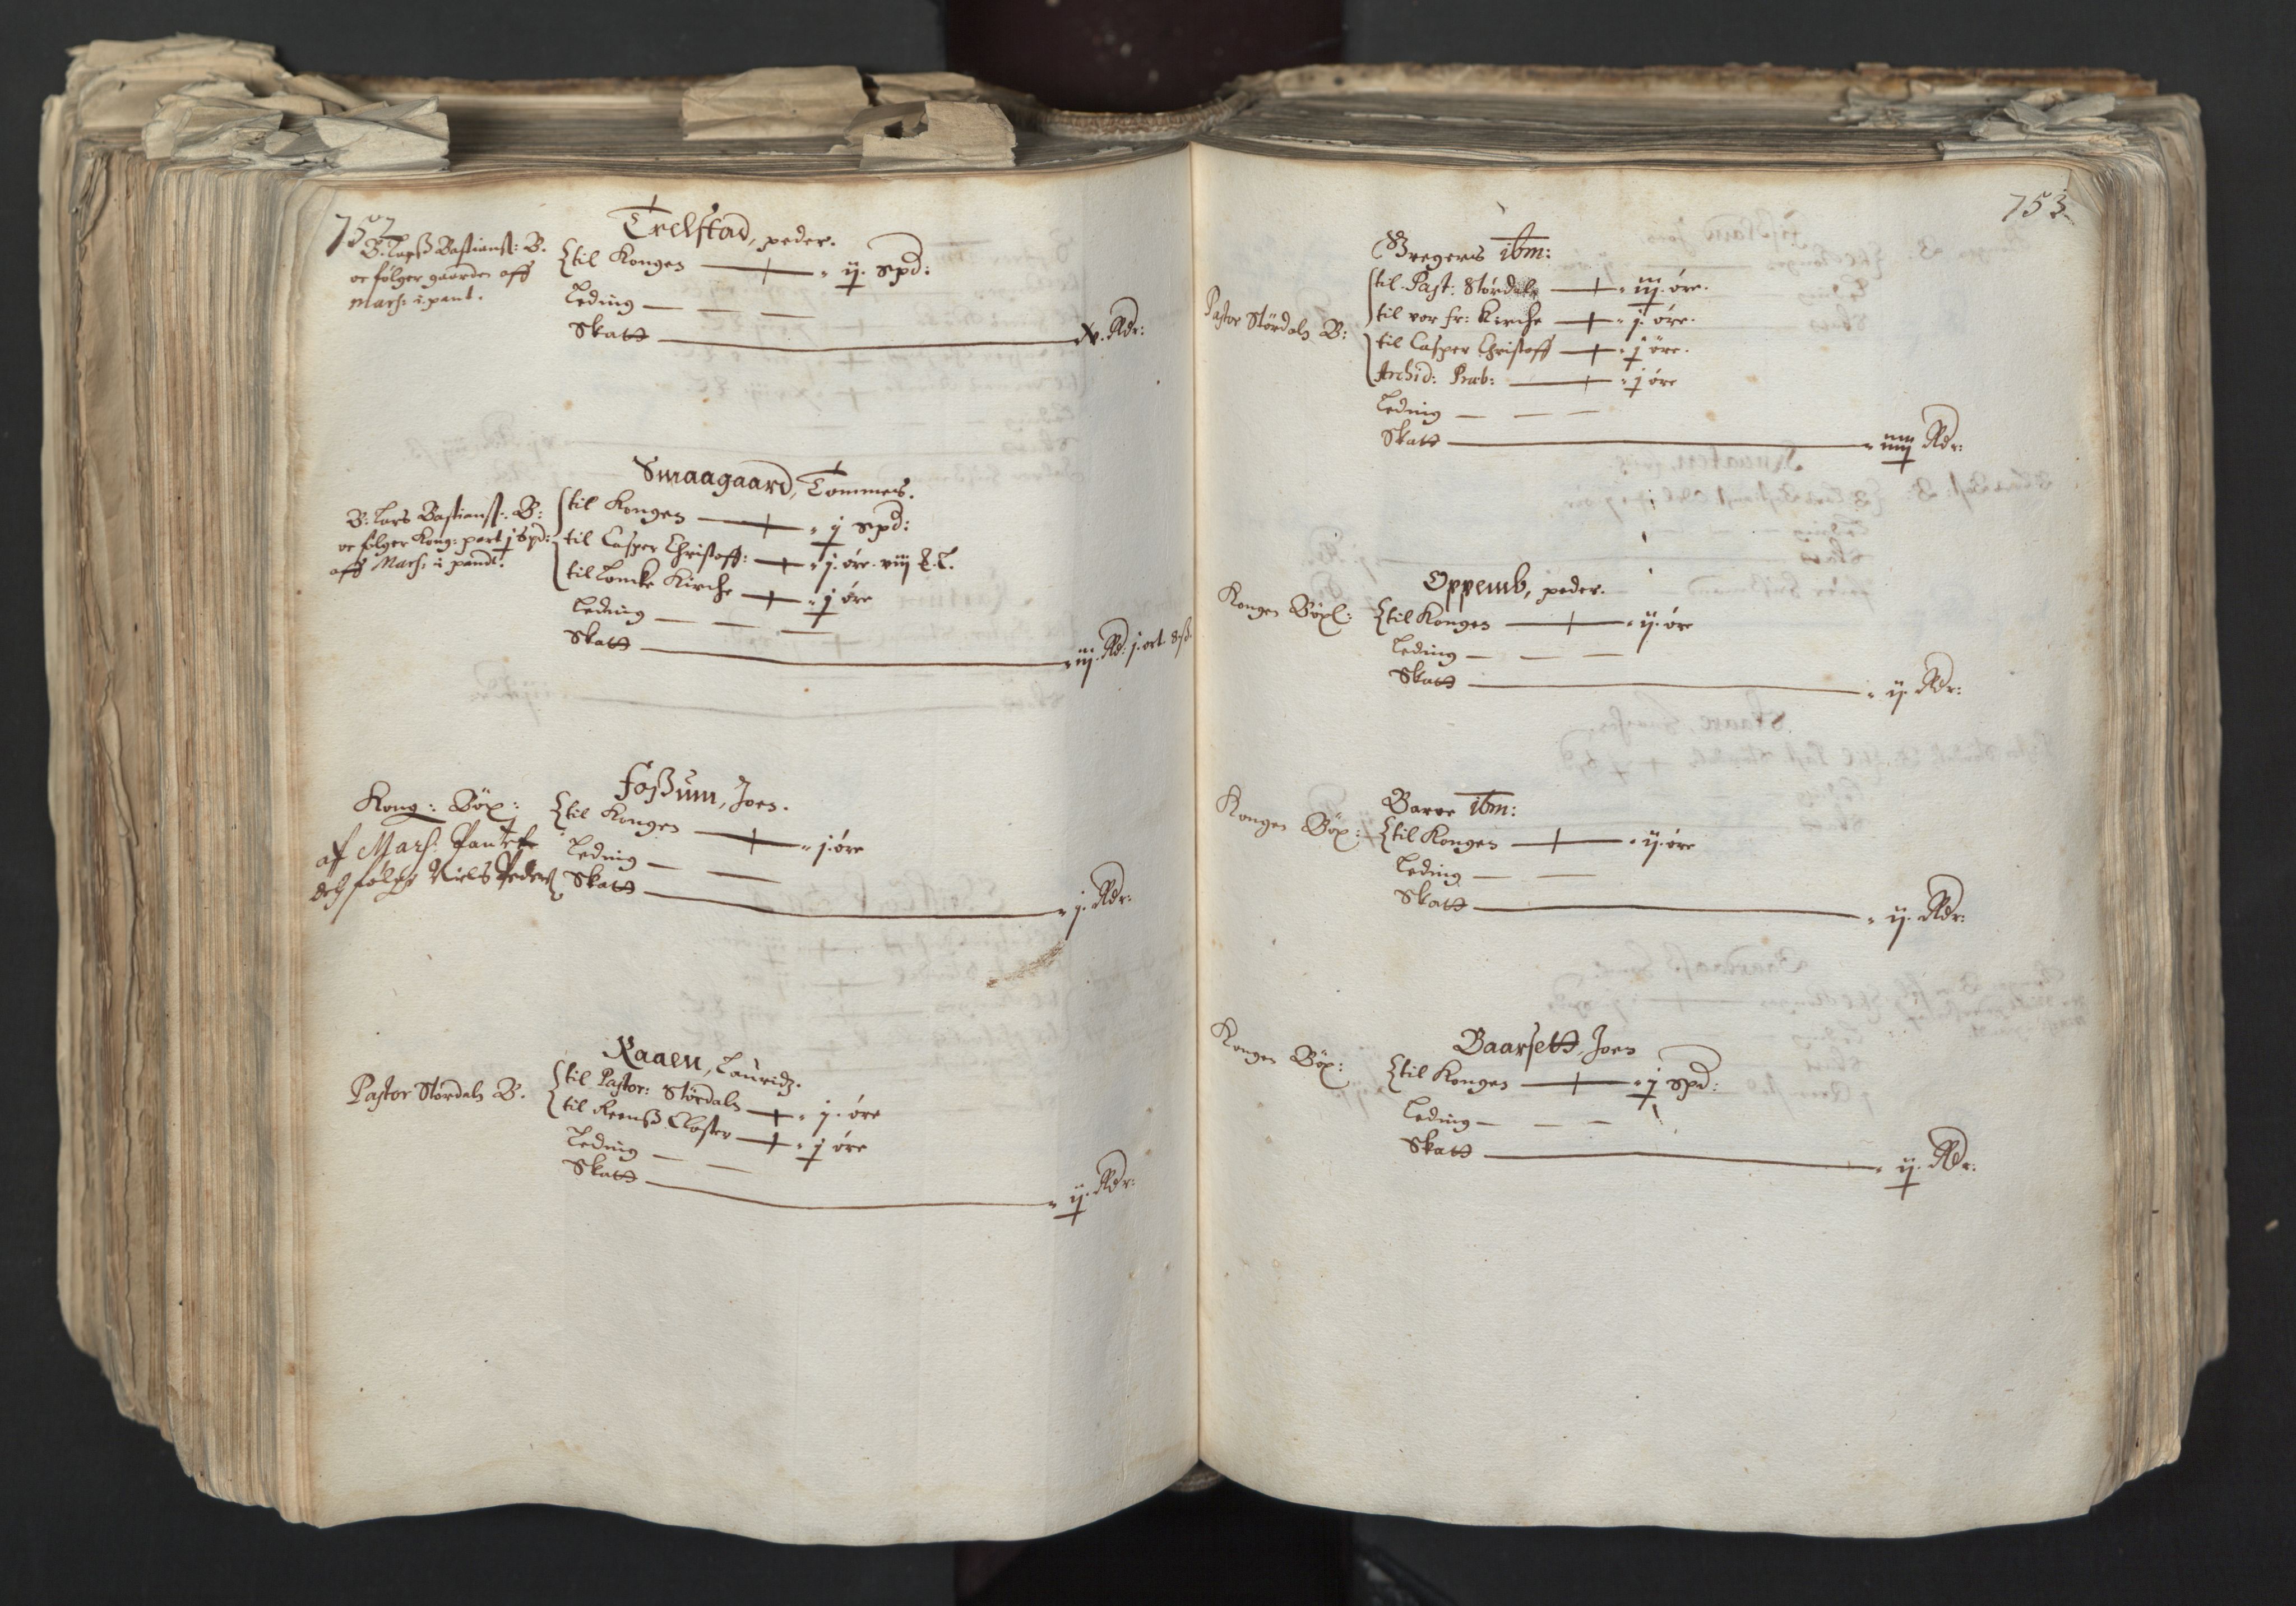 752
Trelstad, peder.
B: Larß Bastianß: B.
oc følger gaarden aff
Mars: i pant.
til Kongen — ij. Spd:
Leding — — —
Skatt — v. Rdr:
Smaagaard, Tommes.
B: Lars Bastianß: B:
oc følger Kong: part j Spd:
aff Mars: i pandt.
til Kongen — j Spd:
til Casper Christoff: — j. øre. viij
til Lomcke Kirche — j øre
Leding — — —
Skatt — iij. Rd. j. ort. 8 ß
Foßum, Joen.
Kong: Böx:
af Mars:
følge Niels Peders
til Kongen — j. øre
Leding — —
Skatt — j. Rdr:
Raaen, Lauridz.
Pastor Størdaln B.
til Pastor: Størdaln — j. øre
til Reenß Closter — j øre
Leding — —
Skatt — ij. Rdr:
753
Gregers ibm:
Pastor Størdaln B:
til Past: Størdaln — iij. øre.
til vor fr: Kirche — j. øre.
til Casper Christoff — j øre.
Archid: Præb: — j øre
Leding — — —
Skatt — iiij Rdr:
Oppemb, peder.
Kongen Böxl:
til Kongen — ij. øre
Leding — — —
Skatt — ij. Rdr:
Baroe ibm:
Kongen Böx:
til Kongen — ij. øre
Leding — —
Skatt — ij. Rdr:
Baarsett, Joen
Kongen Böx:
til Kongen — j Spd:
Leding — — —
Skatt — ij. Rdr: